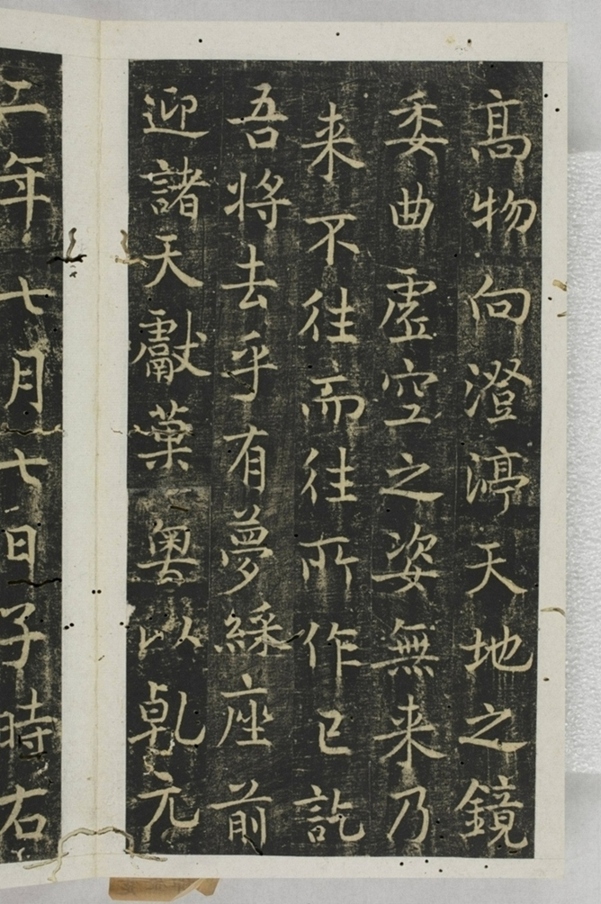 高物向澄渟天地之鏡
委曲虛空之姿無来乃
来不往而往所作已訖
吾将去乎有夢綵座前
迎諸天獻藥粵以乹元
二年七月七日子時右